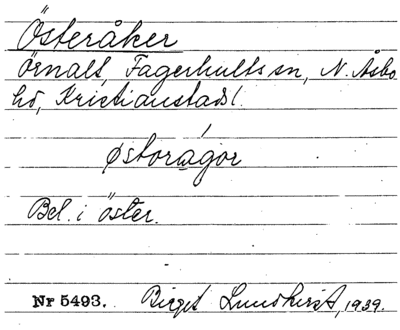 Österåker
Örnalt, Fagerhults sn, N. Åsbo
hd, Kristianstads l.
østorágor
Bel. i öster.
Nr 5493. Birget Lundkvist, 1939.